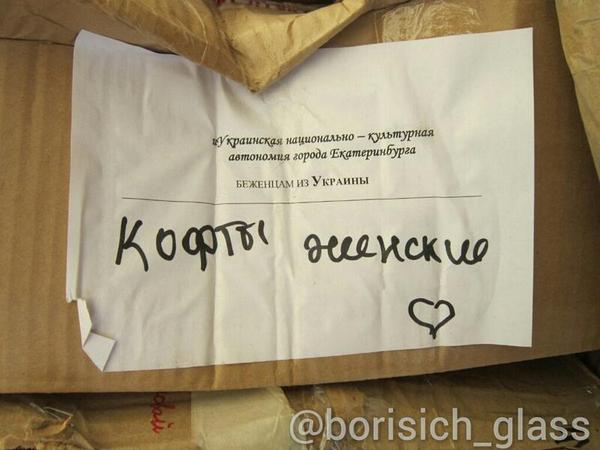 «Украинская национально – культурная
автономия города Екатеринбурга
БЕЖЕНЦАМ ИЗ УКРАИНЫ
Кофты женские
@borisich_glass